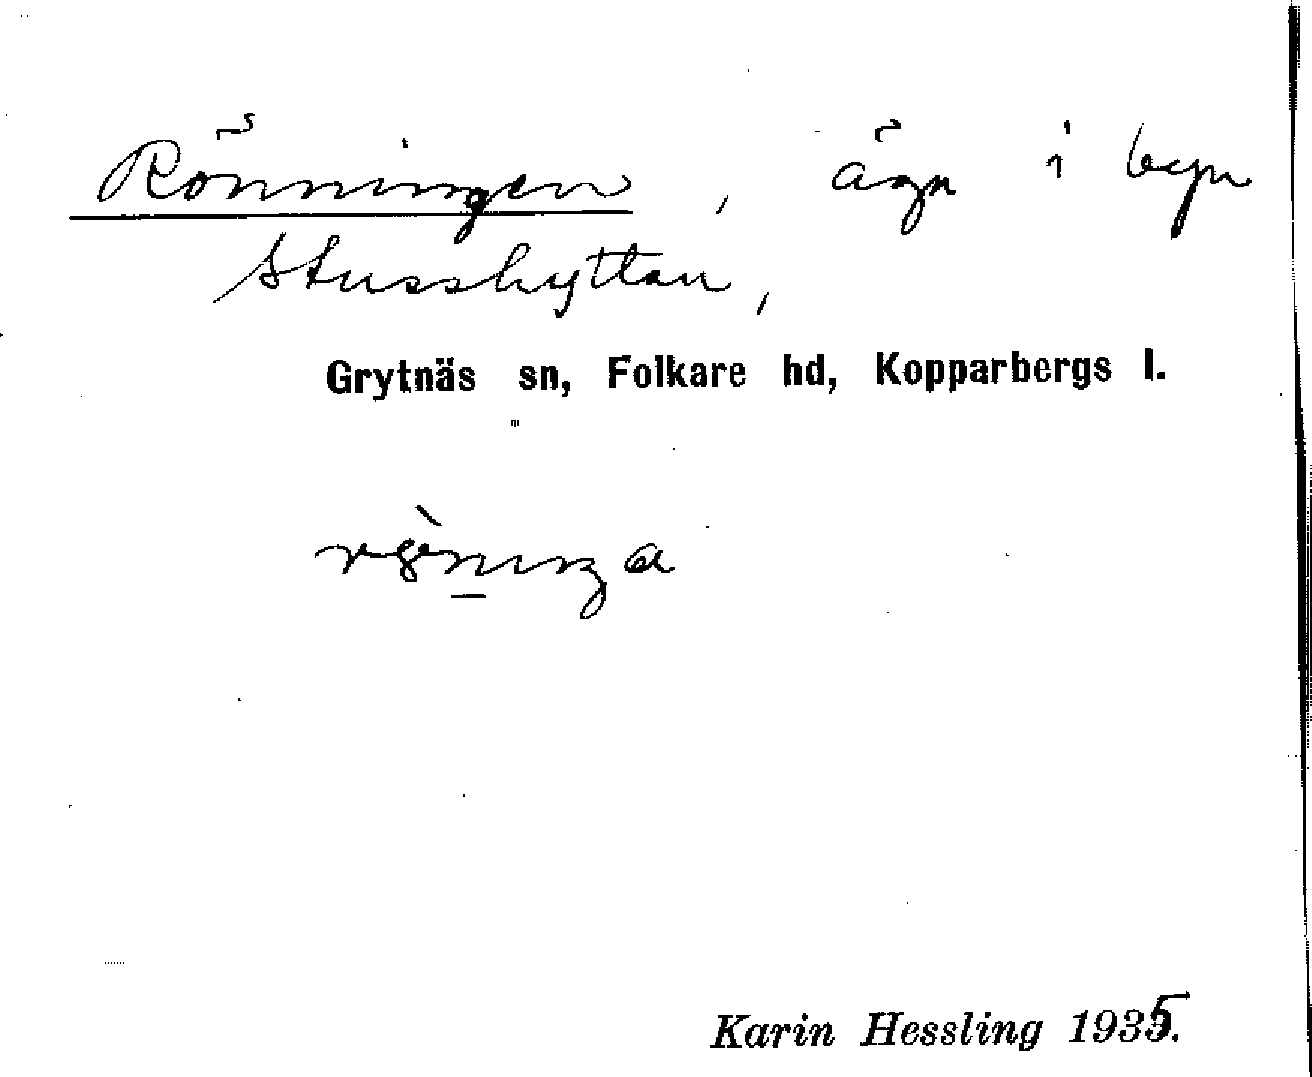 Rönningen, ägn i byn
Stusshyttan,
Grytnäs sn, Folkare hd, Kopparbergs l.
Karin Hessling 1935.